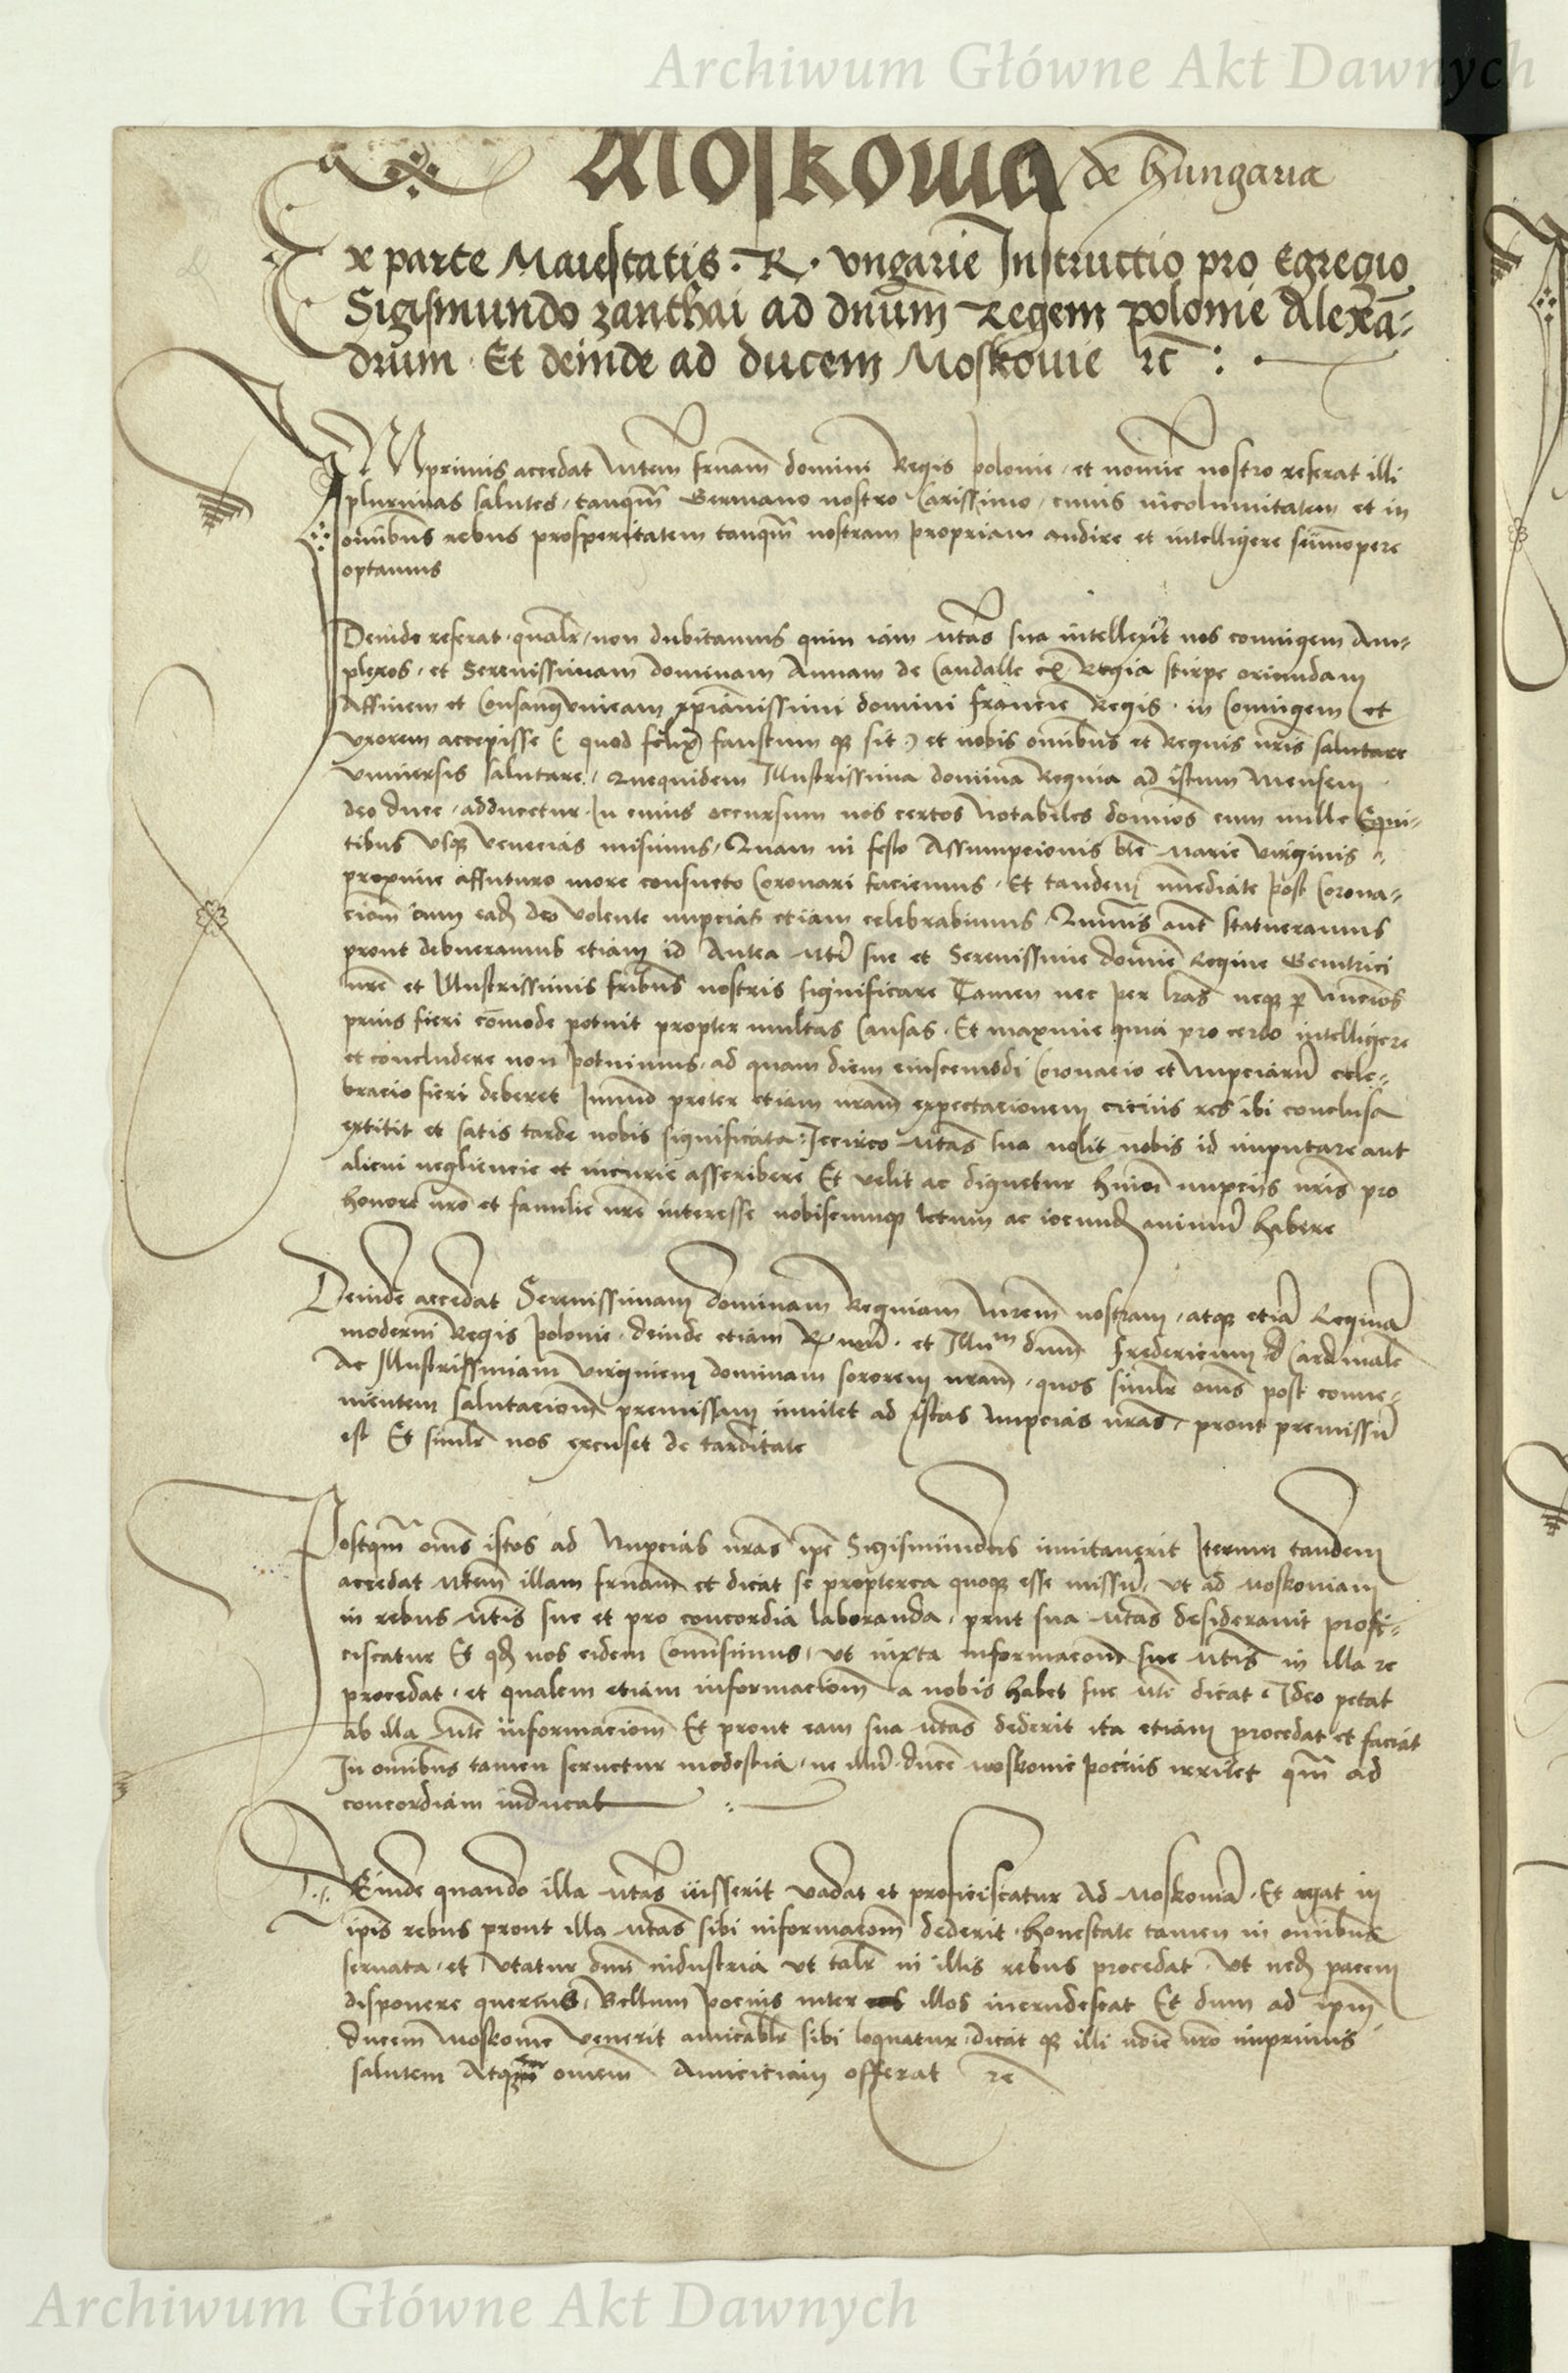 Archiwum Główne Akt Dawnych
Moskouia de Hungaria
Ex parte Maiestatis · R · Vngarie Instructio pro Egregio
Sigismundo Zanthai ad dnūm Regem polonie Alexā-
drum · Et deinde ad ducem Moskouie rc̄ :
IMprimis accedat Mtem̄ frnam̄ domini Regis polonie, et nomīe nostro referat illi
plurimas salutes, tanqm̄ Germano nostro Carissimo, cuius incolumitatem et in
omībus rebus prosperitatem tanqm̄ nostram propriam audire et intelligere sūmopere
optamus
Deinde referat, qualr̄, non dubitamus quin iam Mtas̄ sua intellexit nos coniugem Am-
plexos, et Serenissimam dominam Annam de Candalle ex Regia stirpe oriundam
Affinem et Consangvineam xp̄ianissimi domini francie Regis, in Coniugem et
vxorem accepisse ( quod felix faustum qz sit ) et nobis omībus et Regnis nrīs salutare
vniuersis salutare, Quequidem Illustrissima domina Regina ad istum Mensem
deo duce, adducetur, In cuius occursum nos certos Notabiles domīos cum mille Equi-
tibus vsqz venecias misimus, Quam in festo Assumpcionis bte Marie virginis
proxime affuturo more consueto Coronari faciemus, Et tandem īmediate post Corona-
ciom̄ cum eadꝫ deo volente nupcias etiam celebrabimus, Quāuis aut̄ statueramus
prout debueramus etiam id Antea Mti sue et Serenissime domīe Regine Genitrici
nrē et Illustrissimis frībus nostris significare Tamen nec per lrās neqz p nuncios
prius fieri cōmode potuit propter multas Causas, Et maxime quia pro certo intelligere
et concludere non potuimus, ad quam diem eiuscemodi Coronacio et Nupciarū cele-
bracio fieri deberet Immo preter etiam nram̄ expectacionem cicius res ibi conclusa
extitit et satis tarde nobis significata, Iccirco Mtas̄ sua nolit nobis id imputare aut
alicui negliencie et incurie asscribere Et velit ac dignetur huiōi nupcijs nrīs pro
honore nrō et familie nrē interesse nobiscumqz letum ac iocundꝫ animū habere
Deinde accedat Serenissimam dominam Reginam Mrem̄ nostram, atqz etiā Reginā
moderni Regis polonie, deinde etiam R mū · et Illum dnm̄ Fredericum Cardinalē
Ac Illustrissimam virginem dominam sororem nram̄, quos similr̄ omēs post conue-
nientem salutaciom̄ premissam inuitet ad istas Nupcias nrās, prout premissū
est Et similr̄ nos excuset de tarditate
Postqm̄ omēs istos ad Nupcias nrās ipē Sigismundus inuitauerit Iterum tandem
accedat Mtem̄ illam frnam̄ et dicat se propterea quoqz esse missū, vt ad Moskouiam
in rebus Mtis̄ sue et pro concordia laboranda, prut sua Mtas̄ desiderauit profi-
ciscatur Et qdꝫ nos eidem Comisimus, vt iuxta informacom̄ sue Mtis̄ in illa re
procedat, et qualem etiam informaciom̄ a nobis habet sue Mti dicat, Ideo petat
ab illa Mte informaciom̄ Et prout eam sua Mtas̄ dederit ita etiam procedat et faciat
In omībus tamen seruetur modestia, ne illū ducē Moskouie pocius irritet qm̄ ad
concordiam inducat
DEinde quando illa Mtas̄ iusserit vadat et proficiscatur Ad Moskouiā, Et agat in
ipīs rebus prout illa Mtas̄ sibi informacom̄ dederit, honestate tamen in omībus
seruata, et vtatur omī industria vt talr̄ in illis rebus procedat, vt nedꝫ pacem
disponere querens, Bellum pocius inter illos incrudescat Et dum ad ipm̄
ducem Moskouie venerit amicablr̄ sibi loquatur, dicat qz illi noīe nrō inprimis
salutem Atqz omem̄ Amiciciam offerat rc̄
Archiwum Główne Akt Dawnych